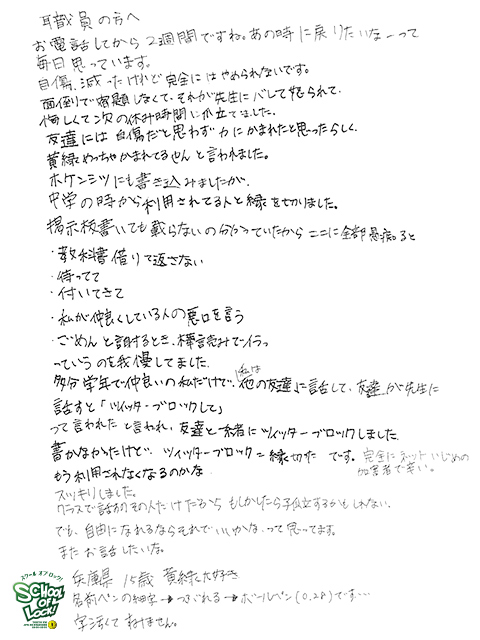 職員の方へ
お電話してから2週間ですね。あの時に戻りたいなーって
毎日思っています。
自傷、減ったけれど完全にはやめられないです。
面倒で宿題しなくて、それが先生にバレて怒られて、
悔しくて次の休み時間に爪立てました。
友達には自傷だと思わず力にかまれたと思ったらしく、
黄緑めっちゃかまれてるやん と言われました。
ホケンシツにも書き込みましたが、
中学の時から利用されてる人と縁を切りました。
掲示板書いても載らないの分かっていたから ここに全部愚痴ると
・教科書借りて返さない
・待ってて
・付いてきて
・私が仲良くしている人の悪口を言う
・ごめんと謝るとき、棒読みでイラッ
っていうのを我慢してました。
多分学年で仲良いの私だけで、私は他の友達に話して、友達が先生に
話すと「ツイッターブロックして」
って言われた と言われ、友達と一緒にツイッターブロックしました
書かなかったけど、ツイッターブロック=縁切った です。完全にネットいじめの
加害者で辛い。
もう利用されなくなるのかな
スッキリしました。
クラスで話すのその人だけだから もしかしたら孤立するかもしれない
でも、自由になれるならそれでいいかな、って思ってます。
またお話したいな。
兵庫県 15歳 黄緑大好き
名前ペンの細字→つぶれる→ボールペン(0.28)です…
字汚くてすみません。
スクール オブ ロック!
SCHOOL OF LOCK!